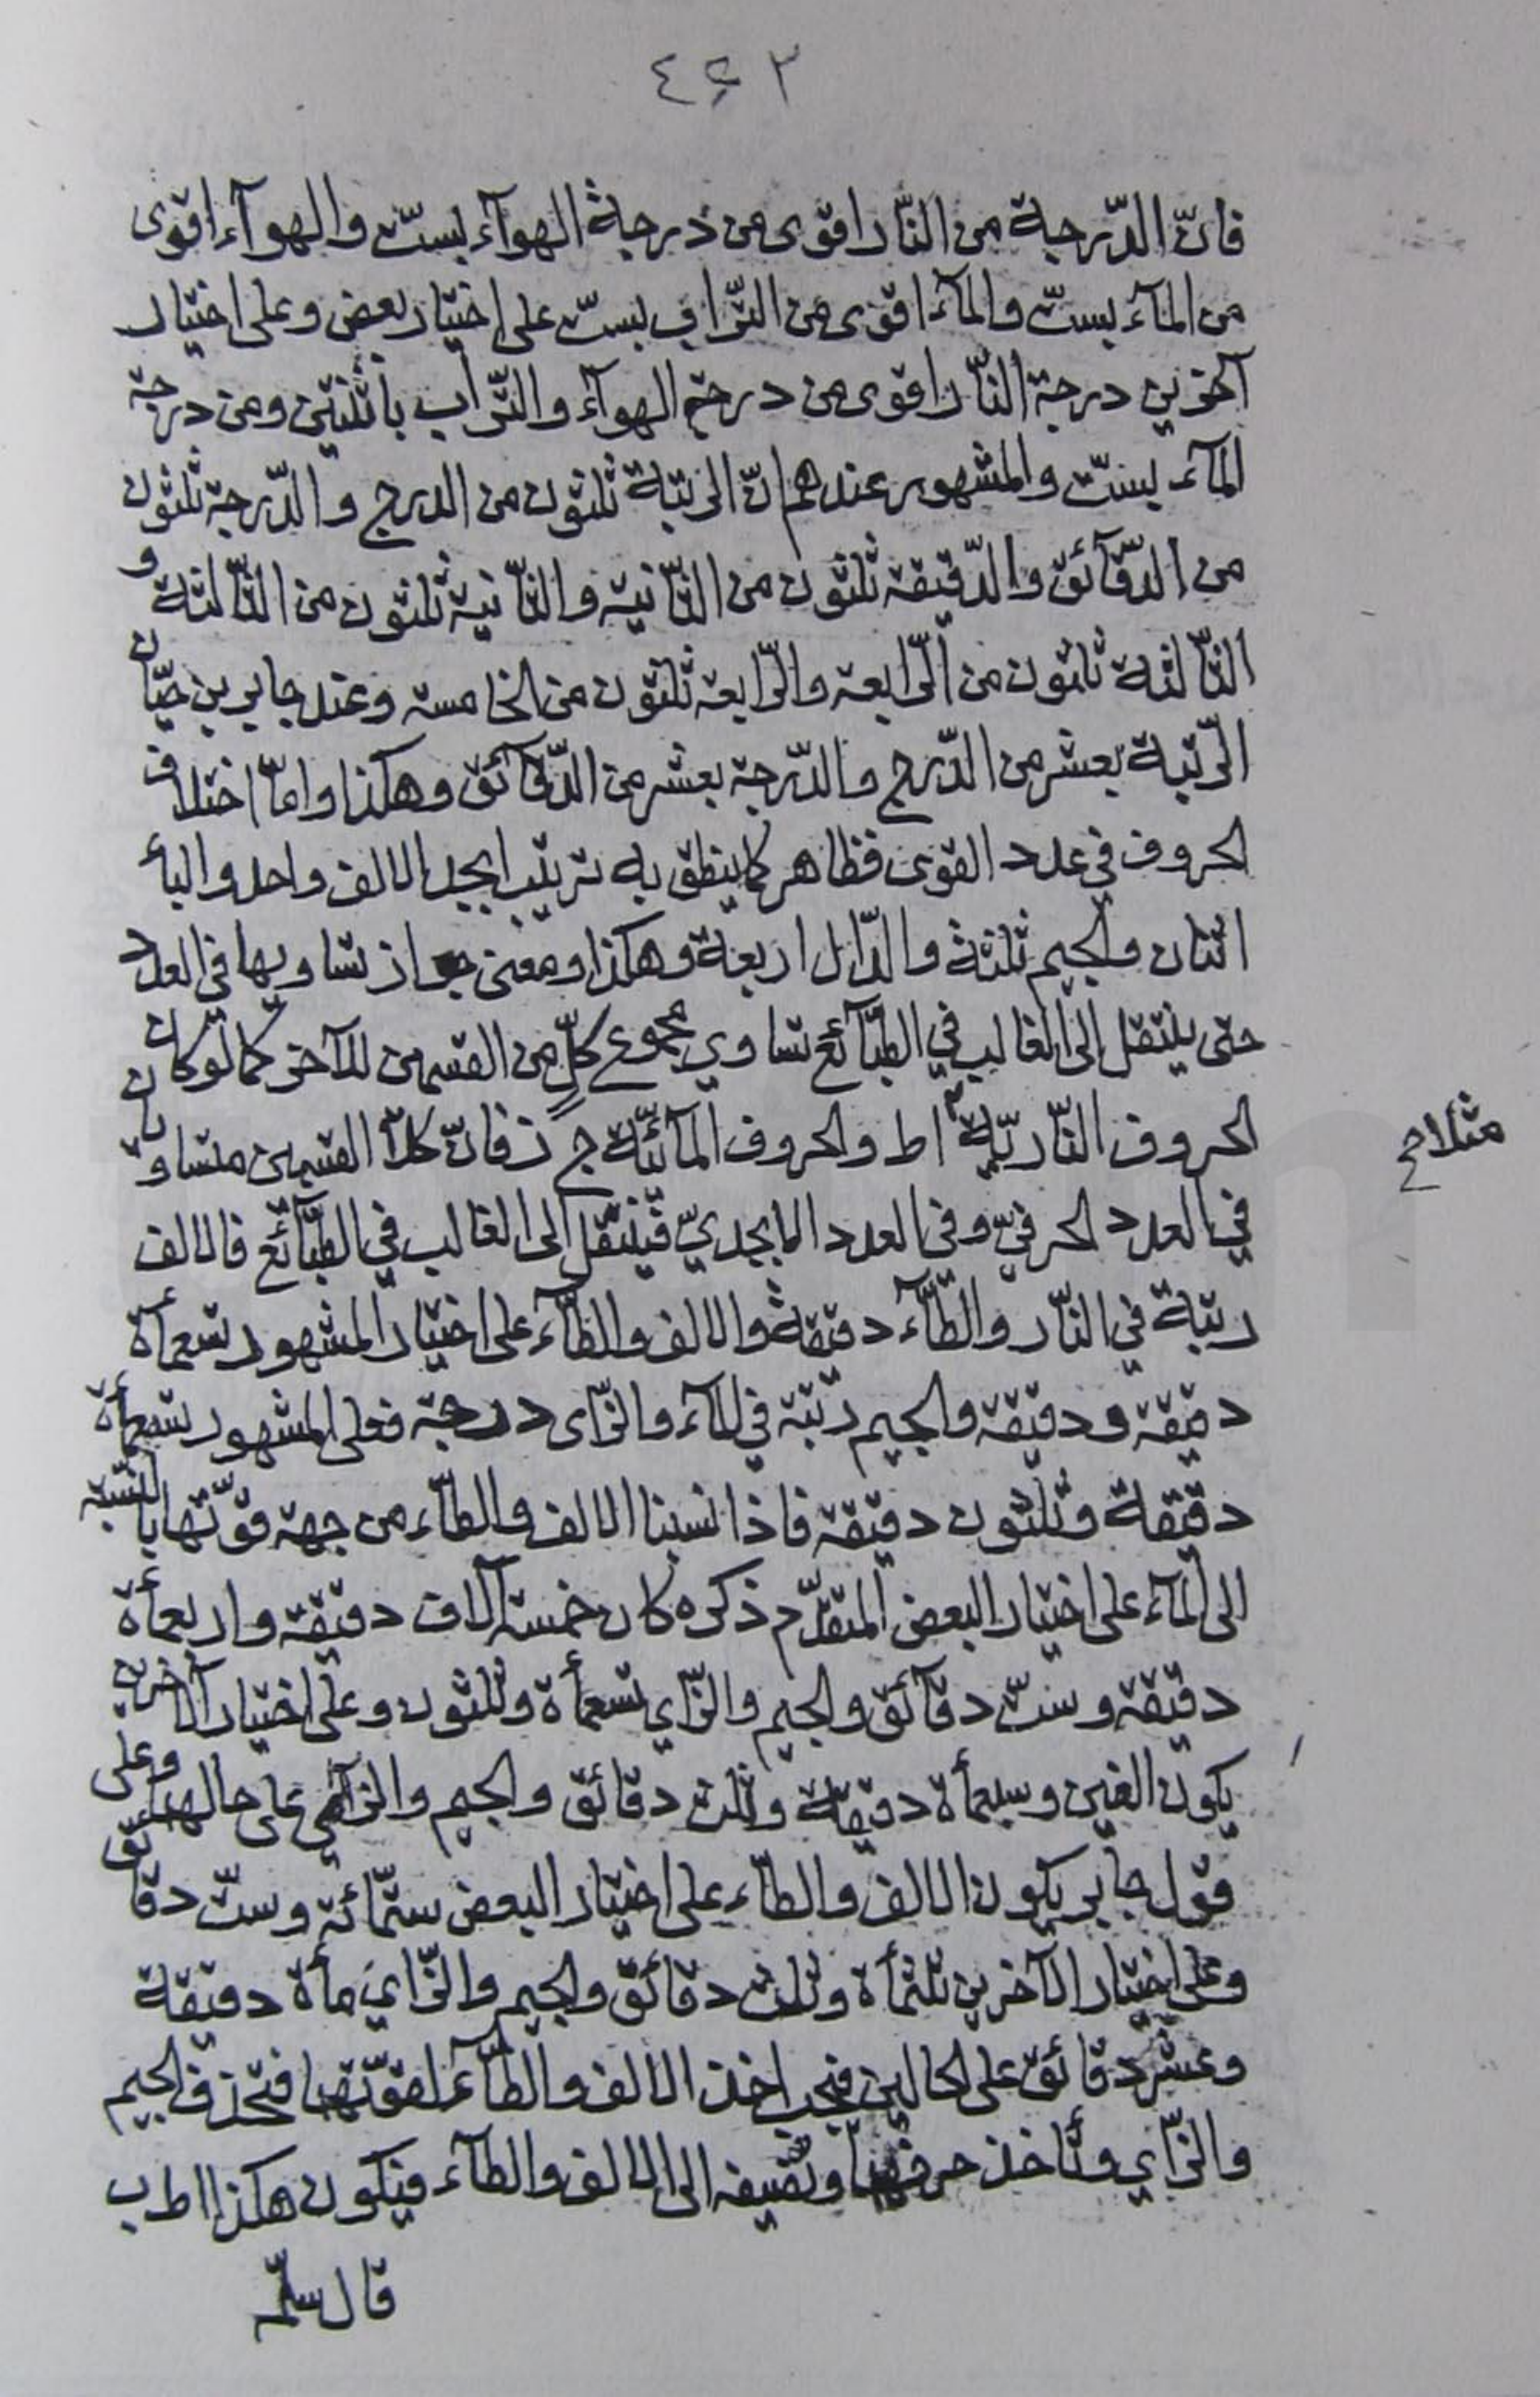 ٤٤٣
فانّ الدّرجة من النّار اقوى من درجة الهوآء بستّ والهوآء اقوى
من المآء بستّ والمآء اقوى من التّراب بستّ على اختيار بعض وعلى اختيار
آخرين درجة النّار اقوى من درجة الهوآء والتّراب باثنتين ومن درجة
المآء بستّ والمشهور عندهم انّ الرتبة ثلثون من الدرج والدّرجة ثلثون
من الدّقآئق والدّقيقه ثلثون من الثّانيه والثّانية ثلثون من الثّالثة و
الثّالثة ثلثون من الرّابعه والرّابعه ثلثون من الخامسه وعند جابر بن حيّان
الرّتبة بعشر من الدّرج والدّرجة بعشر من الدّقآئق وهكذا وامّا اختلاف
الحروف في عدد القوى فظاهر كما ينطق به ترتيب ابجد الالف واحد والبآء
اثنان والجيم ثلثة والدّال اربعة وهكذا ومعنى جواز تساويها في العدد
حتى ينتقل الى الغالب في الطّبآئع تساوي مجموع كلّ من القسمين للآخر كما لو كان
الحروف النّاريّة اط والحروف المآئيّة ج ز فانّ كلا القسمين متساويان
مثلا صح
في العدد الحرفيّ وفي العدد الابجديّ فينتقل الى الغالب في الطّبآئع فالالف
رتبة في النّار والطّآء دقيقة والالف والطّآء على اختيار المشهور تسعمأة
دقيقه ودقيقه والجيم رتبة في المآء والزّاى درجة فعلى المشهور تسعمأة
دقيقة وثلثون دقيقه فاذا نسبنا الالف والطّآء من جهة قوّتها بالنّسبه
الى المآء على اختيار البعض المتقدّم ذكره كان خمسة آلاف دقيقه واربعمأة
دقيقه وستّ دقآئق والجيم والزّاي تسعمأة وثلثون وعلى اختيار الآخرين
يكون الفين وسبعمأة دقيقة وثلث دقائق والجيم والزّاي على حالهما وعلى
قول جابر يكون الالف والطّآء على اختيار البعض ستّمائة وستّ دقآئق
وعلى اختيار الآخرين ثلثمأة وثلث دقائق والجيم والزّاي مأة دقيقة
وعشر دقائق على الحالين فيجب اخذ الالف والطّآء لقوّتهما فتحذف الجيم
والزّاي وتأخذ حرفهما وتضيفه الى الالف والطّآء فيكون هكذا اط ب
قال سلّمه